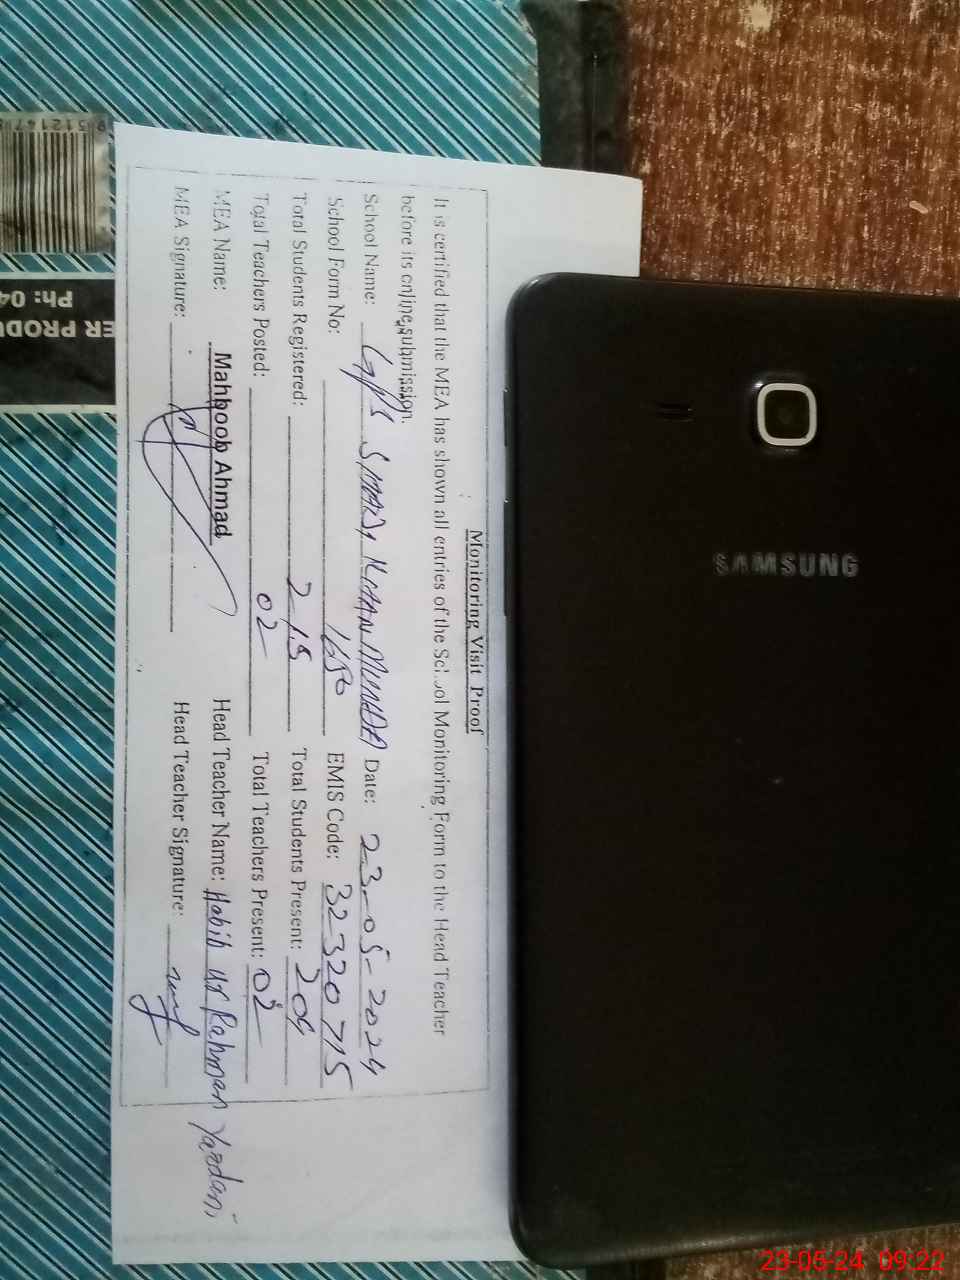 Monitoring Visit Proof
It is certified that the MEA has shown all entries of the School Monitoring Form to the Head Teacher
before its online submission.
School Name: GPS KHAN MUNDA Date: 23-05-2024
School Form No: 1650 EMIS Code: 32320715
Total Students Registered: 215 Total Students Present: 209
Total Teachers Posted: 02 Total Teachers Present: 02
MEA Name: Mahboob Ahmad Head Teacher Name: Habib ur Rahman Yazdani
MEA Signature: Head Teacher Signature:
SAMSUNG
ER PRODU
Ph: 04
23-05-24 09:22